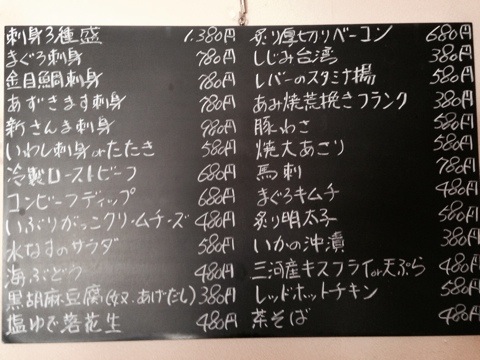 刺身3種盛 1.380円
まぐろ刺身 780円
金目鯛刺身 780円
あずきます刺身 780円
新さんま刺身 980円
いわし刺身orたたき 580円
冷製ローストビーフ 680円
コンビーフディップ 680円
いぶりがっこクリームチーズ 480円
水なすのサラダ 580円
海ぶどう 480円
黒胡麻豆腐(奴.あげだし) 380円
塩ゆで落花生 480円
炙り厚切りベーコン 680円
しじみ台湾 380円
レバーのスタミナ揚 580円
あみ焼荒挽きフランク 380円
豚わさ 580円
焼大あごり 580円
馬刺 780円
まぐろキムチ 480円
炙り明太子 580円
いかの沖漬 380円
三河産キスフライor天ぷら 480円
レッドホットチキン 580円
茶そば 480円